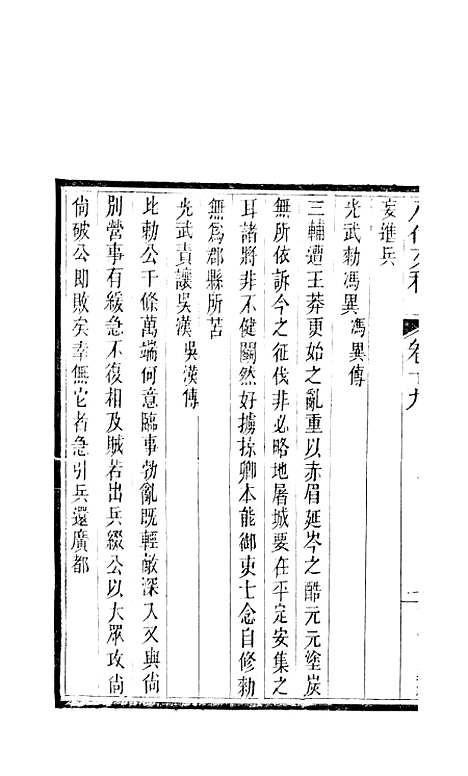 卷十九
妄進兵
光武勑馮異 馮異傳
三輔遭王莽更始之亂重以赤眉延岑之酷元元塗炭
無所依訴今之征伐非必略地屠城要在平定安集之
耳諸將非不健鬭然好擄掠卿本能御吏士念自修勑
無爲郡縣所苦
光武責讓吳漢 吳漢傳
比勑公千條萬端何意臨事勃亂旣輕敵深入又與尙
別營事有緩急不復相及賊若出兵綴公以大眾攻尙
尙破公卽敗矣幸無它者急引兵還廣都